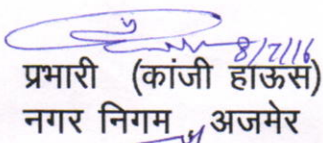 8/7/16
प्रभारी (कांजी हाऊस)
नगर निगम, अजमेर